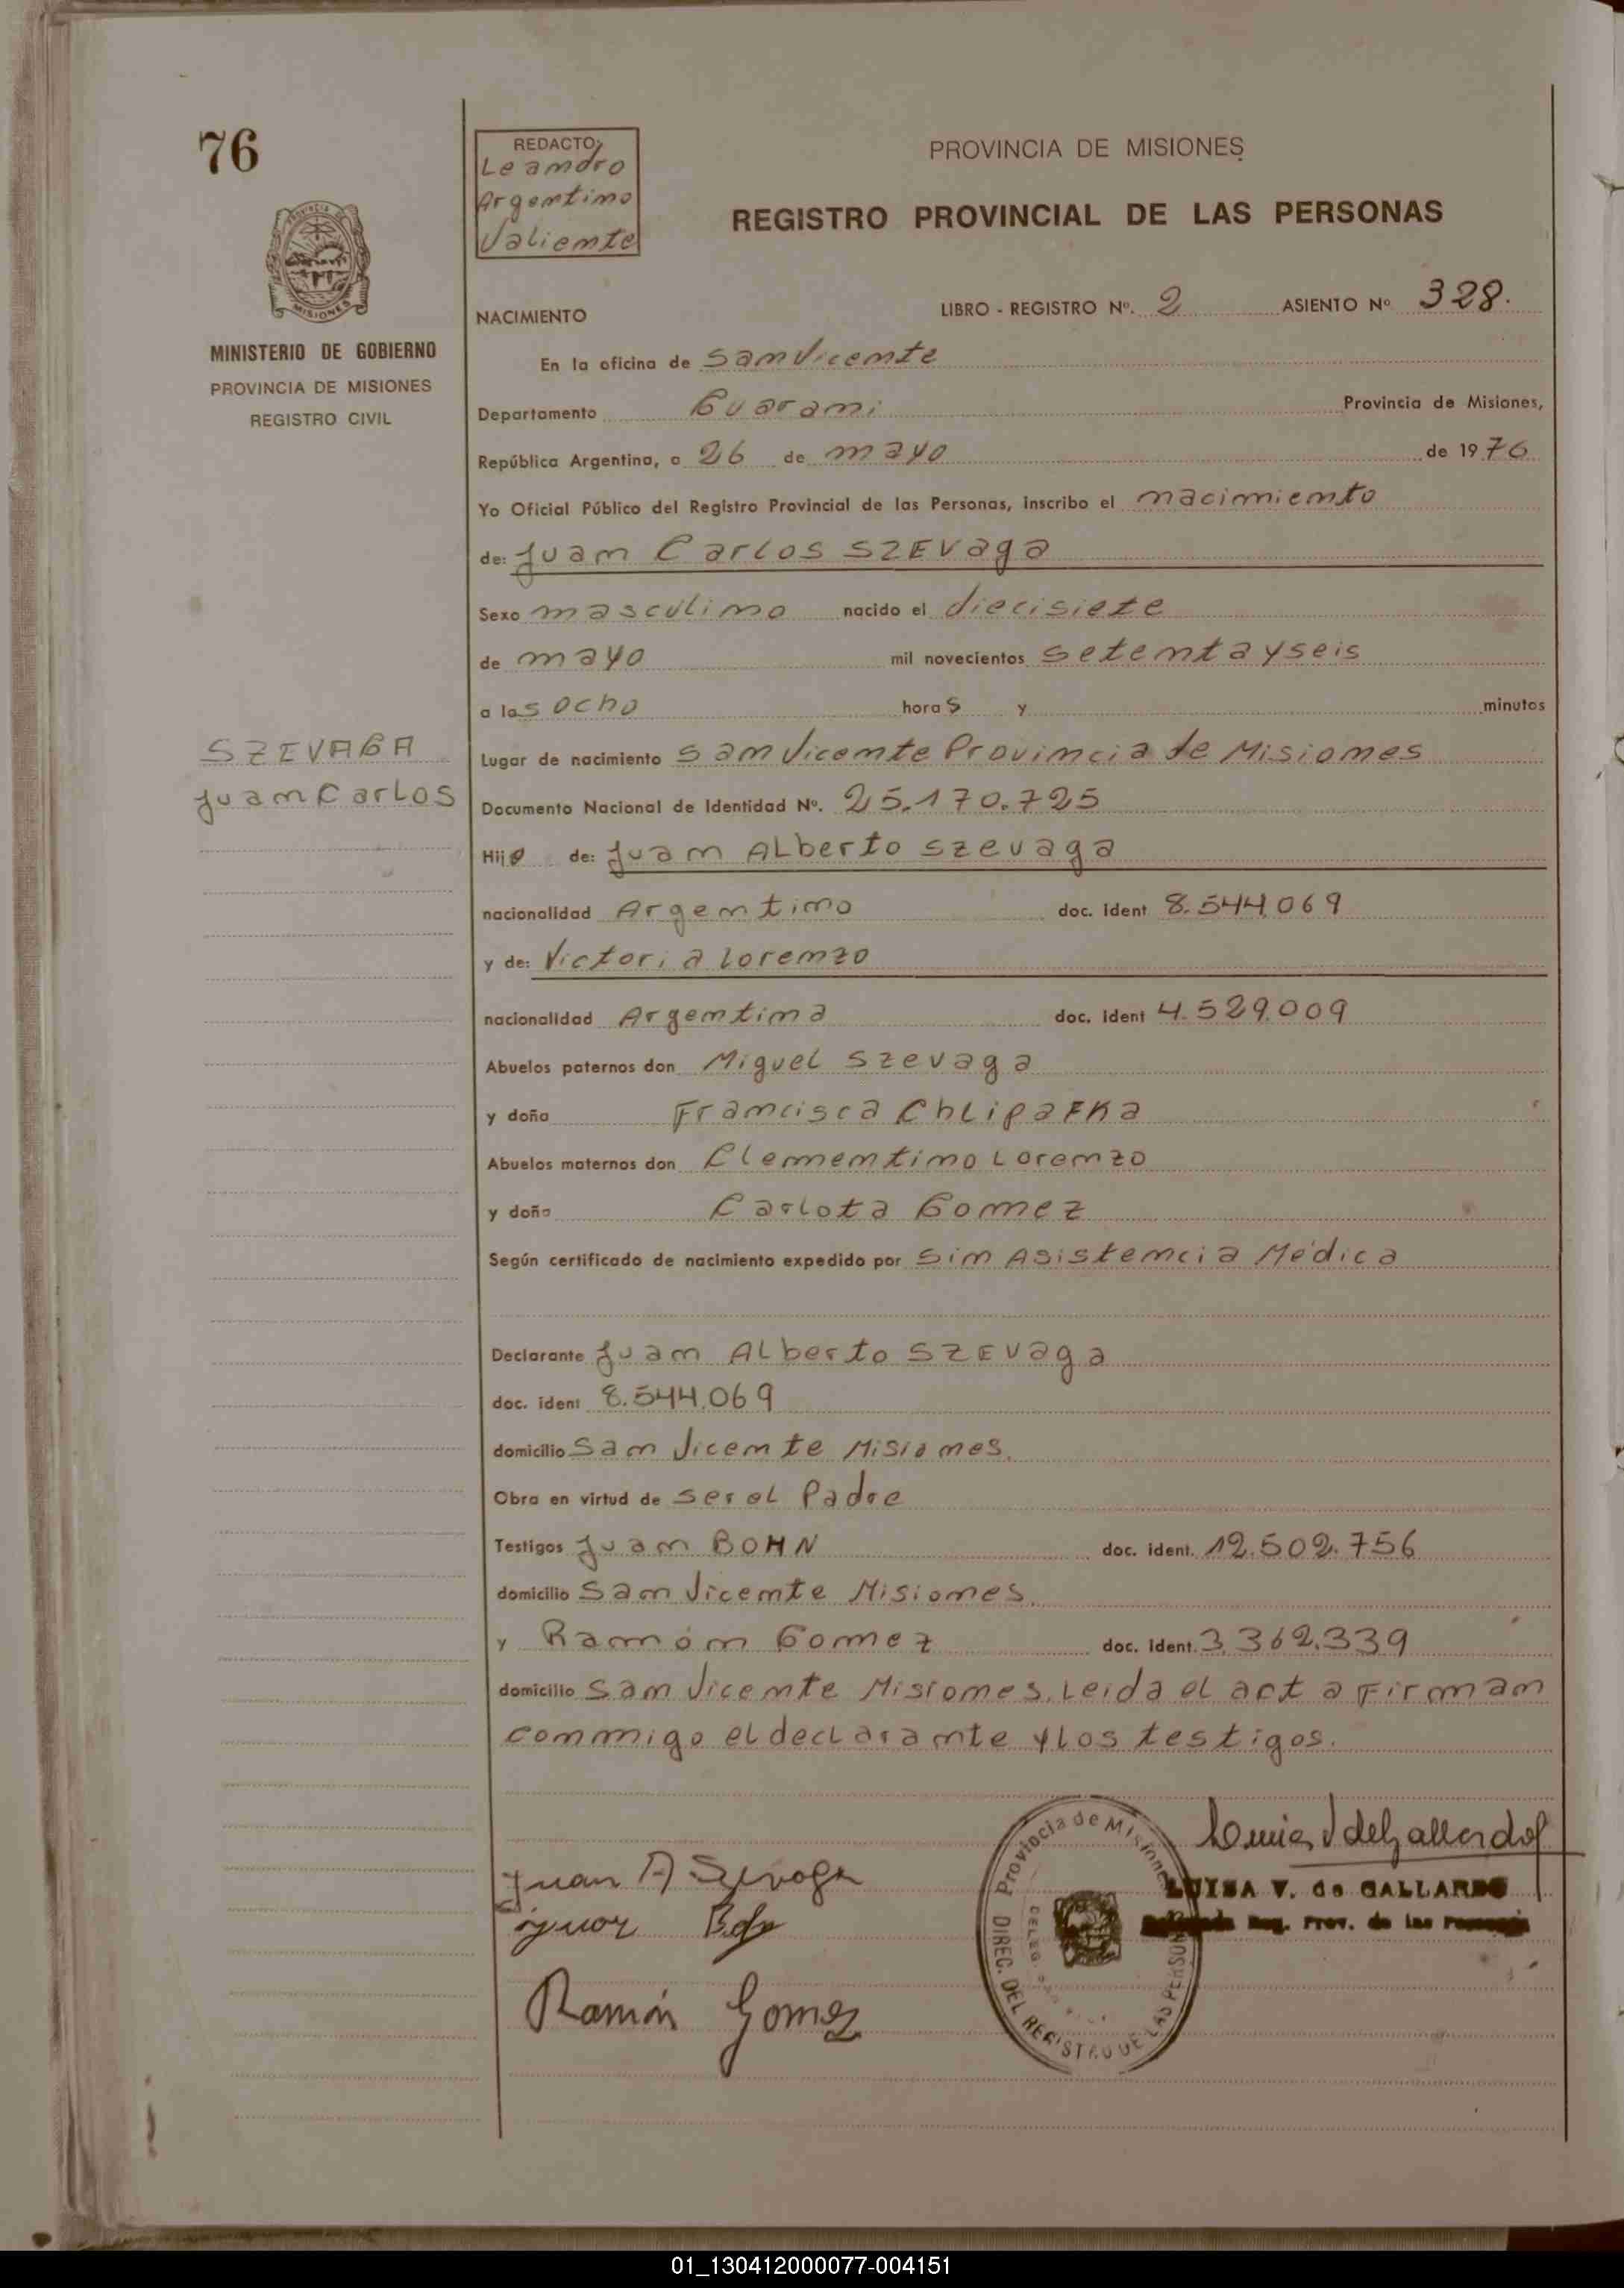 76
PROVINCIA DE MISIONES
MINISTERIO DE GOBIERNO
PROVINCIA DE MISIONES
REGISTRO CIVIL
SZEVAGA
Juan Carlos
REDACTO:
Leandro
Argentino
Valiente
PROVINCIA DE MISIONES
REGISTRO PROVINCIAL DE LAS PERSONAS
NACIMIENTO LIBRO - REGISTRO Nº. 2 ASIENTO Nº 328.
En la oficina de San Vicente
Departamento Guarani Provincia de Misiones,
República Argentina, a 26 de mayo de 1976
Yo Oficial Público del Registro Provincial de las Personas, inscribo el nacimiento
de: Juan Carlos SZEVaga
Sexo masculino nacido el diecisiete
de mayo mil novecientos setenta y seis
a las ocho horas y minutos
Lugar de nacimiento San Vicente Provincia de Misiones
Documento Nacional de Identidad Nº. 25.170.725
Hijo de: Juan Alberto Szevaga
nacionalidad Argentino doc. ident 8.544.069
y de: Victoria Lorenzo
nacionalidad Argentina doc. ident 4.529.009
Abuelos paternos don Miguel Szevaga
y doña Francisca Chlipafka
Abuelos maternos don Clementino Lorenzo
y doña Carlota Gomez
Según certificado de nacimiento expedido por Sin Asistencia Médica
Declarante Juan Alberto SZEVaga
doc. ident 8.544.069
domicilio San Vicente Misiones.
Obra en virtud de ser el Padre
Testigos Juan BOHN doc. ident. 12.502.756
domicilio San Vicente Misiones.
y Ramón Gomez doc. ident. 3.362.339
domicilio San Vicente Misiones. Leida el acta Firman
conmigo el declarante y los testigos.
Juan A Szevaga
Juan
Ramón Gomez
Provincia de Misiones
DIREC. DEL REGISTRO DE LAS PERSONAS
Luisa V de Gallardo
LUISA V. de GALLARDO
Reg. Prov. de las Personas
01_130412000077-004151